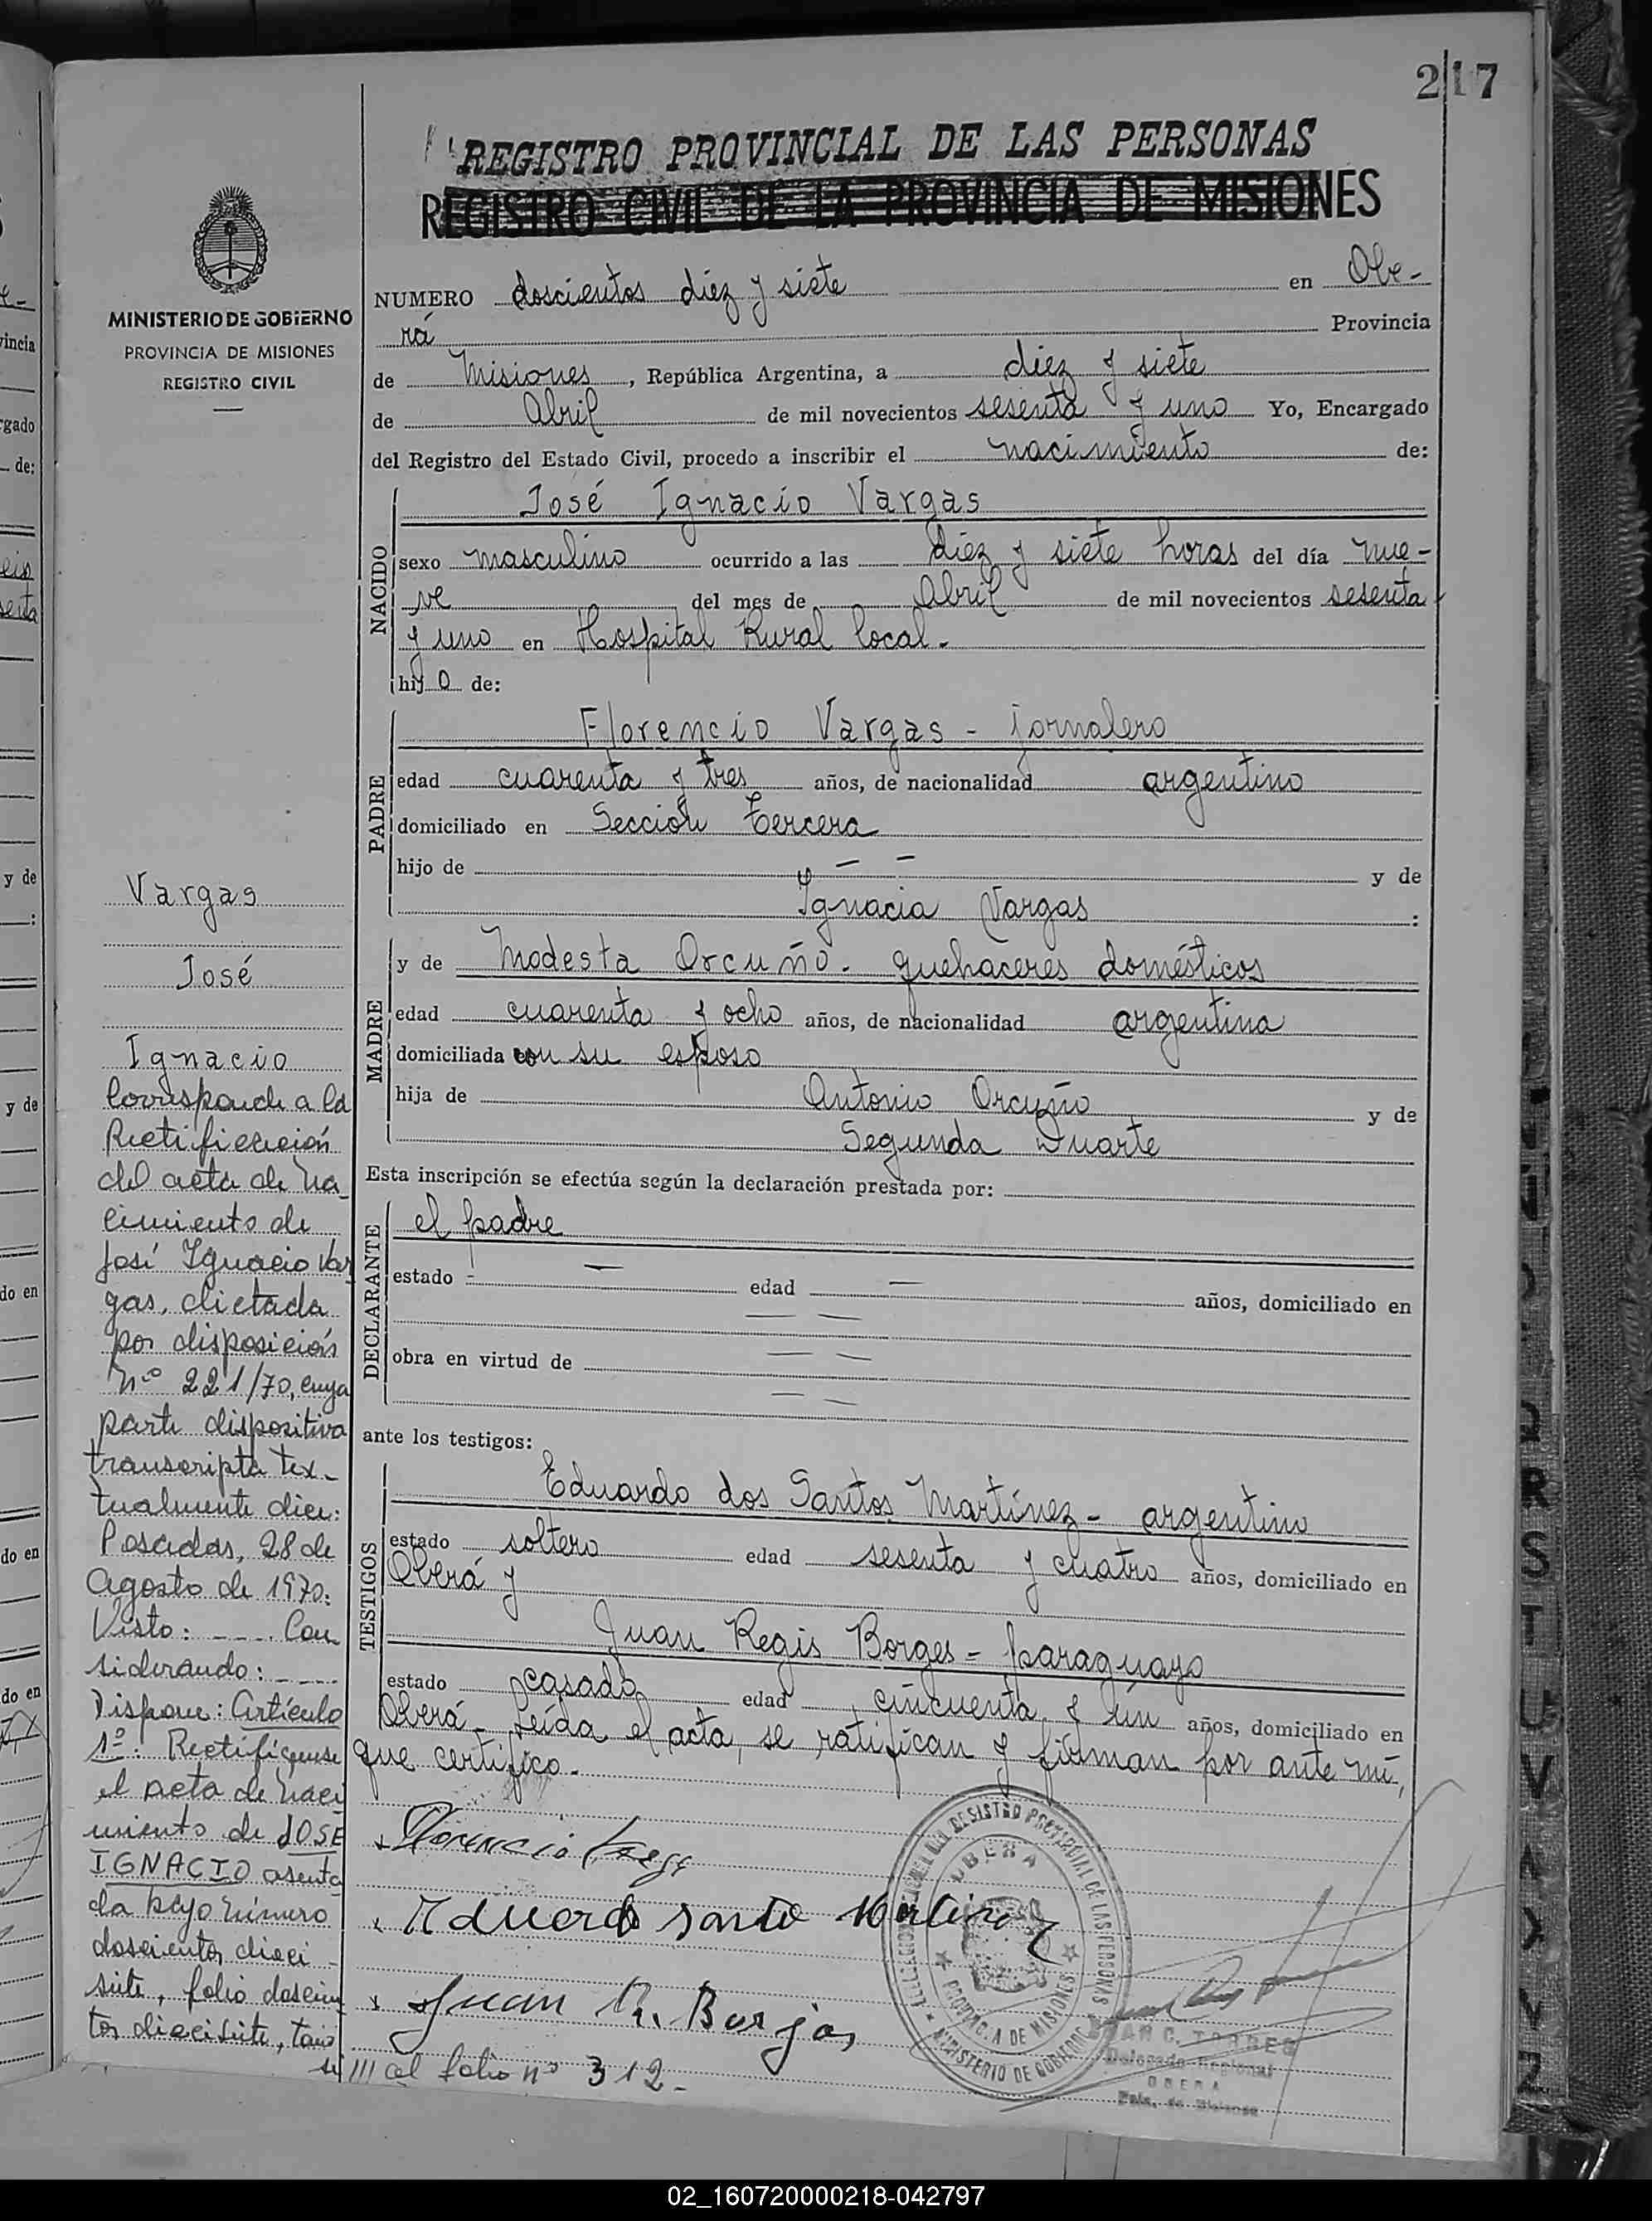 217
REGISTRO PROVINCIAL DE LAS PERSONAS
REGISTRO CIVIL DE LA PROVINCIA DE MISIONES
MINISTERIO DE GOBIERNO
PROVINCIA DE MISIONES
REGISTRO CIVIL
NUMERO doscientos diez y siete en Obe-
rá Provincia
de Misiones, República Argentina, a diez y siete
de Abril de mil novecientos sesenta y uno Yo, Encargado
del Registro del Estado Civil, procedo a inscribir el nacimiento de:
NACIDO
José Ignacio Vargas
sexo masculino ocurrido a las diez y siete horas del día nue-
ve del mes de Abril de mil novecientos sesenta
y uno en Hospital Rural local.
hijo de:
PADRE
Florencio Vargas - jornalero
edad cuarenta y tres años, de nacionalidad argentino
domiciliado en Sección tercera
hijo de — — y de
Ignacia Vargas :
MADRE
y de Modesta Orcuño. quehaceres domésticos
edad cuarenta y ocho años, de nacionalidad argentina
domiciliada con su esposo
hija de Antonio Orcuño y de
Segunda Duarte
Esta inscripción se efectúa según la declaración prestada por:
DECLARANTE
el padre
estado — edad — años, domiciliado en
— —
obra en virtud de — —
— —
ante los testigos:
TESTIGOS
Eduardo dos Santos Martínez - argentino
estado soltero edad sesenta y cuatro años, domiciliado en
Oberá y
Juan Regis Borges = paraguayo
estado casado edad cincuenta y un años, domiciliado en
Oberá. Leída el acta, se ratifican y firman por ante mí,
que certifico.
Florencio
Eduardo santo Martinez
Juan R. Borjas
DEL REGISTRO PROVINCIAL DE LAS PERSONAS
OBERA
PROVINCIA DE MISIONES
MINISTERIO DE GOBIERNO
JUAN C. TORRES
Delegado Regional
OBERA
Pcia. de Misiones
Vargas
José
Ignacio
Corresponde a la
Rectificación
del acta de na-
cimiento de
José Ignacio Var
gas, dictada
por disposición
Nº 221/70, cuya
parte dispositiva
transcripta tex-
tualmente dice:
Posadas, 28 de
Agosto de 1970:
Visto: ---- Con
siderando: ----
Dispone: Artículo
1º: Rectifíquese
el acta de naci
miento de JOSE
IGNACIO asenta
da bajo número
doscientos dieci-
siete, folio doscien
tos diecisiete, tomo
/// al folio nº 312-
02_160720000218-042797